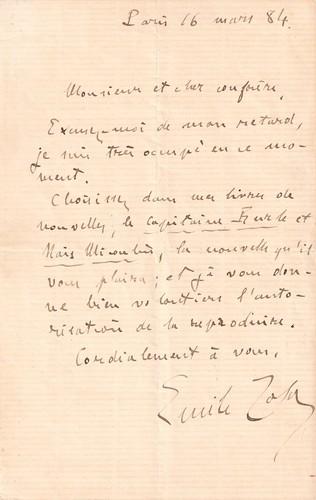 Paris 16 mars 84.
Monsieur et cher confrère,
Excusez-moi de mon retard,
je suis très occupé en ce mo-
ment.
Choisissez dans mes livres de
nouvelles, le Capitaine Burle et
Naïs Micoulin, la nouvelle qu'il
vous plaira; et je vous don-
ne bien volontiers l'auto-
risation de la reproduire.
Cordialement à vous,
Emile Zola